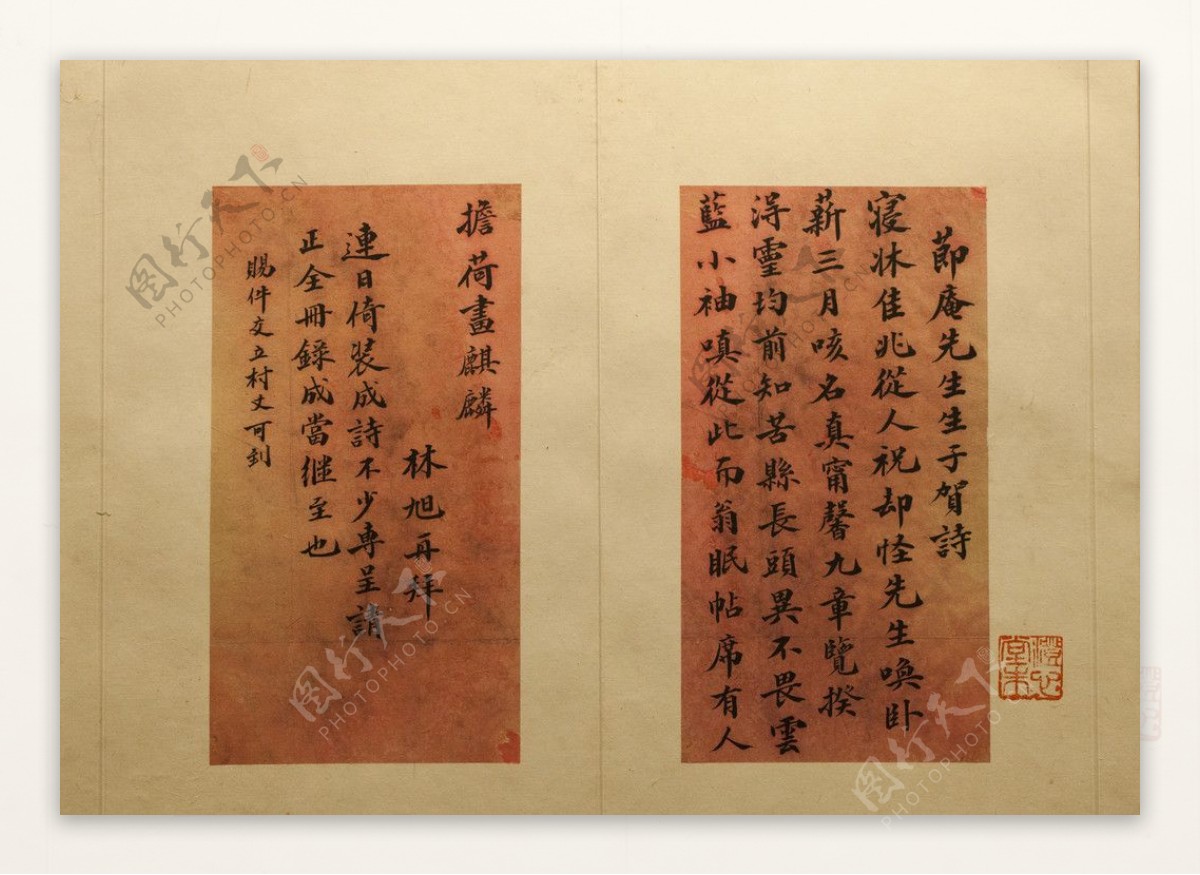 節庵先生生子賀詩
寢牀佳兆從人祝却怪先生喚卧
薪三月咳名真甯馨九章覽揆
得靈均前知苦縣長頭異不畏雲
藍小袖嗔從此而翁眠帖席有人
擔荷畫麒麟
林旭再拜
連日倚裝成詩不少專呈請
正全冊錄成當继至也
賜件交立村丈可到
图行天下
PHOTOPHOTO.CN
图行天下
PHOTOPHOTO.CN
图行天下
PHOTOPHOTO.CN